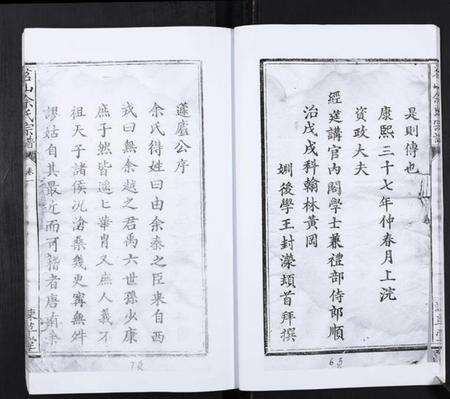 是則傳也
康熙三十七年仲春月上浣
資政大夫
經筵講官內閣學士兼禮部侍郎順
治戊戌科翰林黃岡
姻後學王封濚頓首拜撰
63
蘧廬公序
余氏得姓曰由余秦之臣来自西
戎曰無余越之君禹六世孫少康
庶子然皆遠匕華胄又庶人義不
祖天子諸侯况滄桑幾更寗無舛
謬姑自其最近而可稽者唐有余
茗山余氏宗譜
卷一
東平堂
7